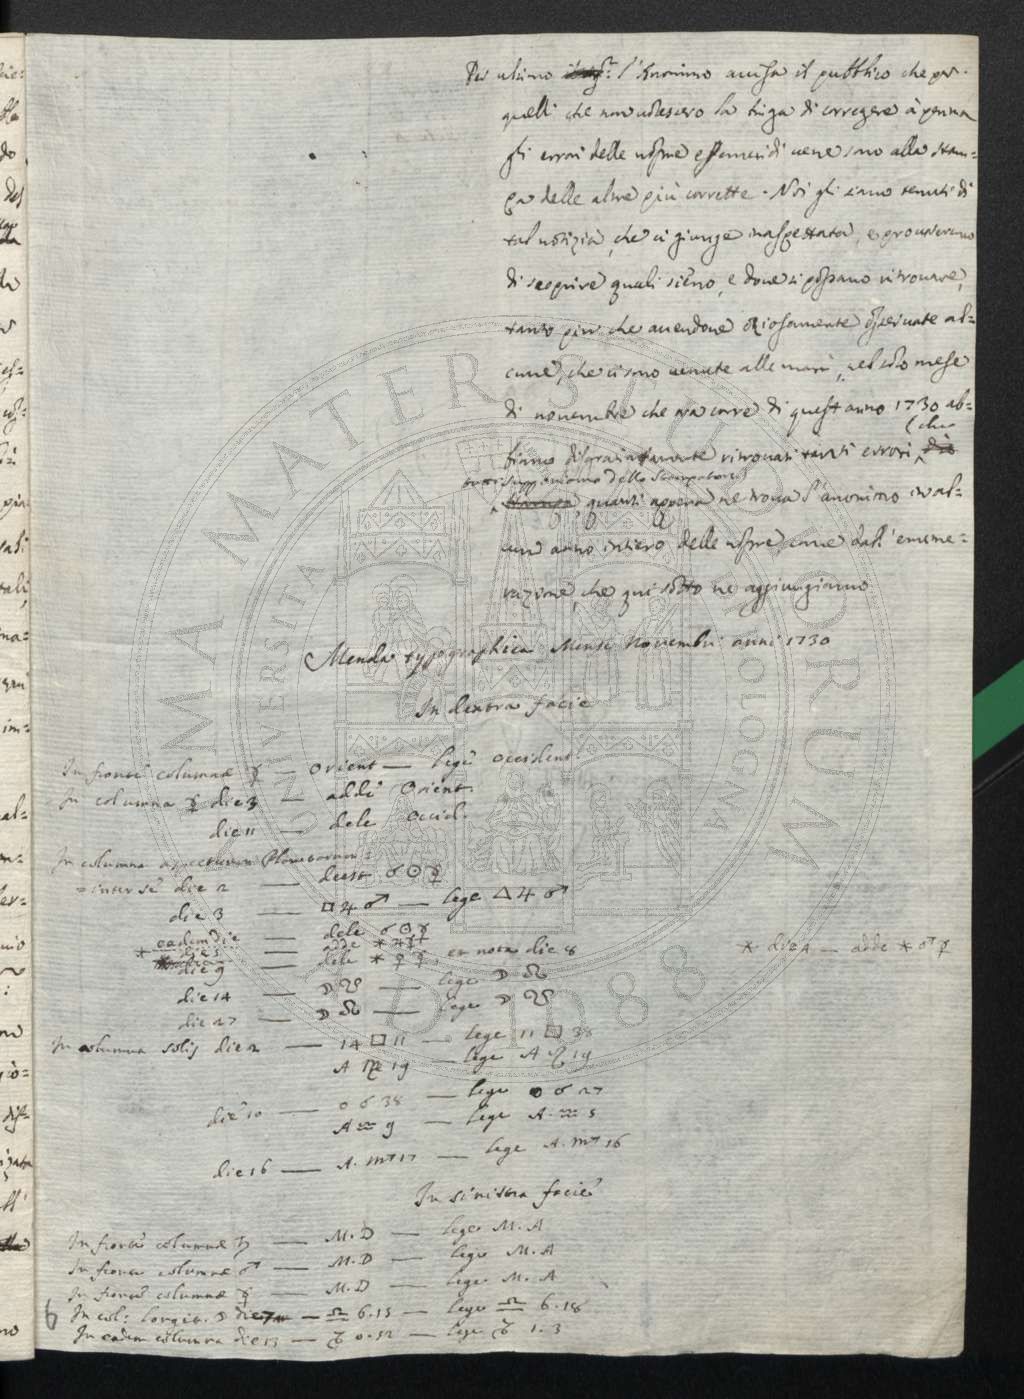 Per ultimo l'Anonimo auisa il pubblico che per
quelli che non uolessero la briga di corregere à penna
gli errori delle nostre effemeridi uene sono alla stam=
pa delle altre più corrette. Noi gli siamo tenuti di
tal notizia, che ci giunge inaspettata, e procureremo
di scoprire quali sieno, e doue si possano ritrouare,
tanto più che auendone oziosamente osseruate al=
cune, che ci sono uenute alle mani, nel solo mese
di nouembre che ora corre di quest'anno 1730 ab=
biamo disgraziatamente ritrouati tanti errori, che
tutti supponiamo dello stampatore
quanti appena ne troua l'anonimo in al=
cun anno intiero delle nostre, come dall'enume=
razione, che qui sotto ne aggiungiamo
Menda typographica Mense Nouembri anni 1730
In dextra facie
In fronte columnae ☿ — Orient — lege occident.
In columna ☿ die 3 — adde Orient.
die 11 — dele Occid.
In columna aspectuum Planetarum
inter se die 2 — deest ☌☉☿
die 3 — □♃♂ — lege △♃♂
eadem die — dele ☌☉☿
die 5 — adde
die 9 — dele * ☿♀, et nota die 8
* die 4 — adde * ♂☿
die 14 — ☽☋ — lege ☽☊
die 27 — ☽☊ — lege ☽☋
In columna solis die 2 — 14 □ 11 — lege 11 □ 38
A ♍ 19 — lege A 19
die 10 — 0 ☌ 38 — lege 0 ☌ 27
A ♒ 9 — lege A. ♒ 5
die 16 — A. ♏ 17 — lege A. ♏ 16
In sinistra facie
In fronte columnae ♄ — M.D — lege M.A
In fronte columnae ♂ — M.D — lege M.A
In fronte columnae ☿ — M.D — lege M.A
In col: longit. ☽ die 7 — ♎ 6.15 — lege ♎ 6.18
In eadem columna die 13 — ♑ 0.52 — lege ♑ 1.3
6
ALMA MATER STUDIORUM
UNIVERSITA DI BOLOGNA
A.D. 1088